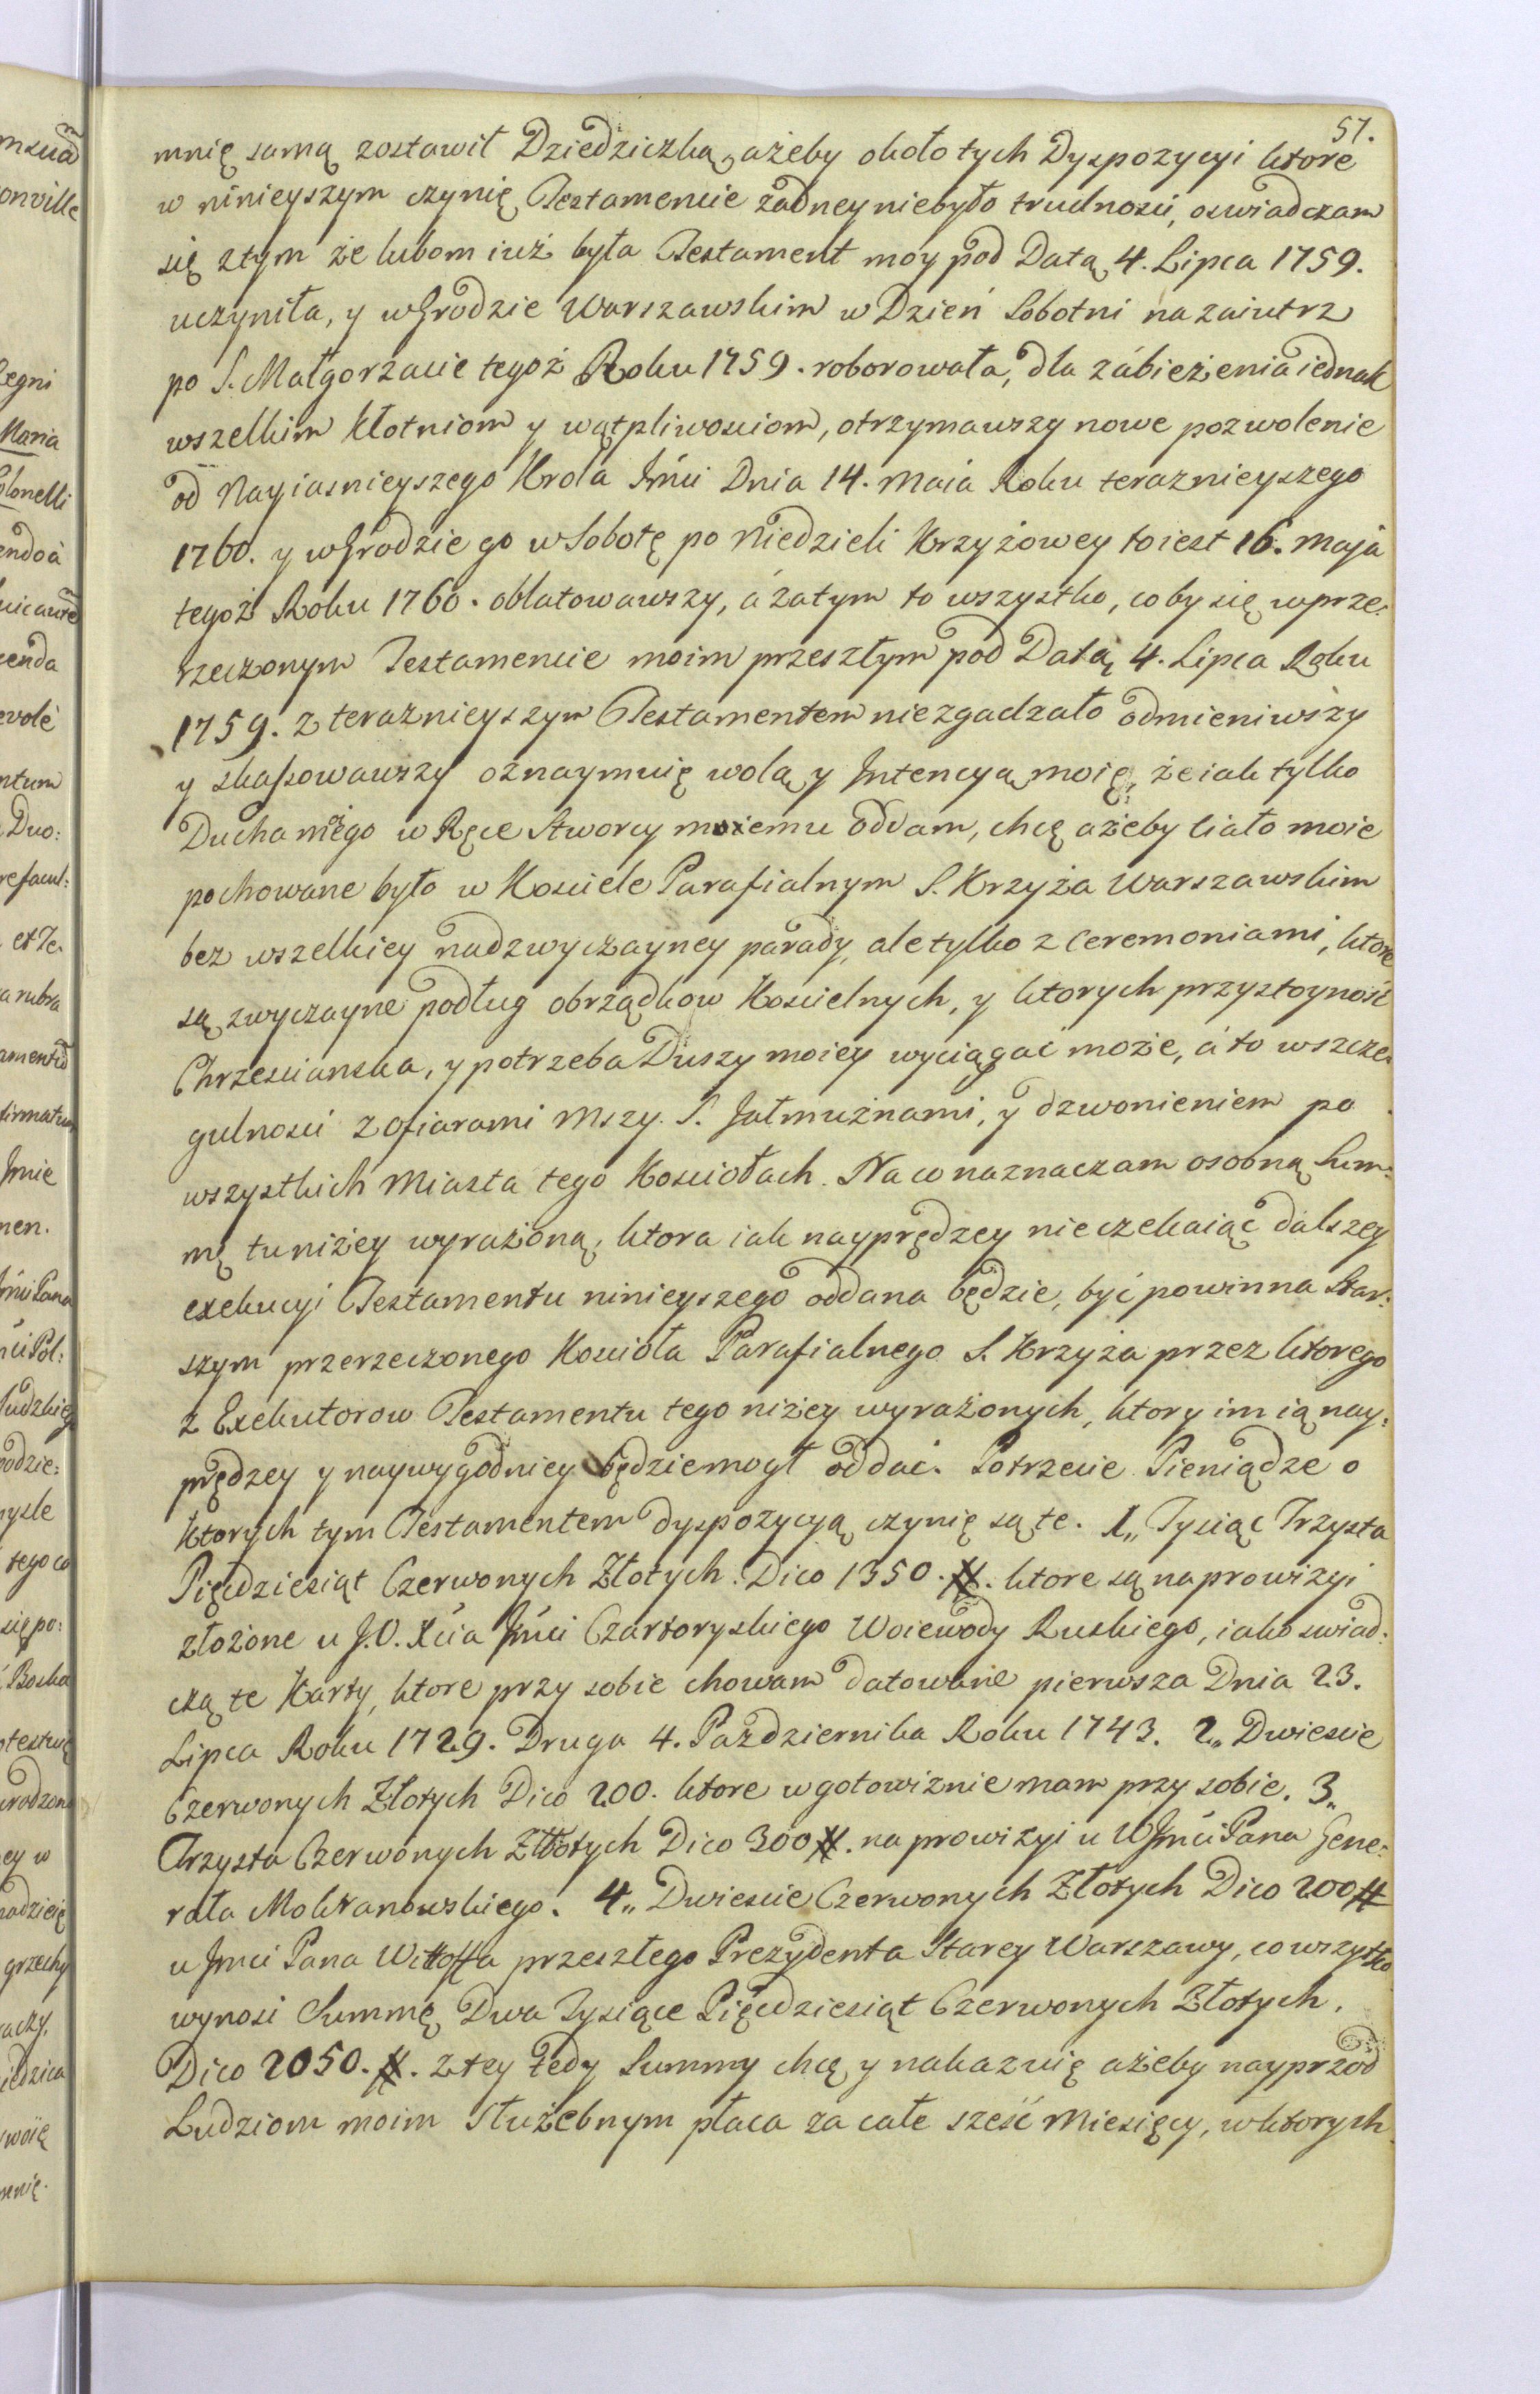 57.
mnię samą zostawił Dziedziczką, ażeby około tych Dyspozycyi ktore
w ninieyszym czynię Testamencie żadney niebyło trudnosci, oswiadczam
się ztym że lubom iuż była Testament moy pod Datą 4. Lipca 1759.
uczyniła, y w Grodzie Warszawskim w Dzień Sobotni nazaiutrz
po S. Małgorzacie tegoż Roku 1759. roborowała, dla zábieżenia iednak
wszelkim Kłotniom y wątpliwosciom, otrzymawszy nowe pozwolenie
od Nayiasnieyszego Krola Jmci Dnia 14. Maia Roku teraznieyszego
1760. y w Grodzie go w Sobotę po Niedzieli Krzyżowey to iest 16. Maja
tegoż Roku 1760. oblatowawszy, á zatym to wszystko, coby się wprze:
rzeczonym Testamencie moim przeszłym pod Datą 4. Lipca Roku
1759. z teraznieyszym Testamentem niezgadzało odmieniwszy
y skassowawszy oznaymuię wolą y Jntencyą moię, że iak tylko
Ducha mego w Ręce Stworcy moiemu oddam, chcę ażeby ciało moie
pochowane było w Kosciele Parafialnym S. Krzyża Warszawskim
bez wszelkiey nadzwyczayney parady, ale tylko z Ceremoniami, ktore
są zwyczayne podług obrządkow Koscielnych, y ktorych przystoyność
Chrzescianska, y potrzeba Duszy moiey wyciągać może, á to wszcze:
gulnosci z ofiarami Mszy S. Jałmużnami, y dzwonieniem po
wszystkich Miasta tego Kosciołach. Na co naznaczam osobną Sum:
mę tu niżey wyrażoną, ktora iak nayprędzey nieczekaiąc dalszey
exekucyi Testamentu ninieyszego oddana będzie, być powinna Star:
szym przerzeczonego Kosciola Parafialnego S. Krzyża przez ktorego
z Exekutorow Testamentu tego niżey wyrażonych, ktory im ią nay:
prędzey y naywygodniey będzie mogł oddać. Potrzecie Pieniądze o
ktorych tym Testamentem dyspozycyą czynię są te. 1„ Tysiąc Trzysta
Pięćdziesiąt Czerwonych Złotych. Dico 1350. #. ktore są na prowizyi
złożone u J.O. Xcia Jmci Czartoryskiego Woiewody Ruskiego, iako swiad:
czą te Karty, ktore przy sobie chowam datowane pierwsza Dnia 23.
Lipca Roku 1729. Druga 4. Pazdziernika Roku 1743. 2„ Dwiescie
Czerwonych Złotych Dico 200. ktore w gotowiznie mam przy sobie. 3„
Trzysta Czerwonych Złotych Dico 300 #. na prowizyi u WJmci Pana Gene:
rała Mokranowskiego. 4„ Dwiescie Czerwonych Złotych Dico 200 #
u Jmci Pana Wittoffa przeszłego Prezydenta Starey Warszawy, co wszystko
wynosi Summę Dwa Tysiące Pięćdziesiąt Czerwonych Złotych.
Dico 2050. #. z tey tedy Summy chcę y nakazuię ażeby nayprzod
Ludziom moim Służebnym płaca za całe sześć Miesięcy, w ktorych